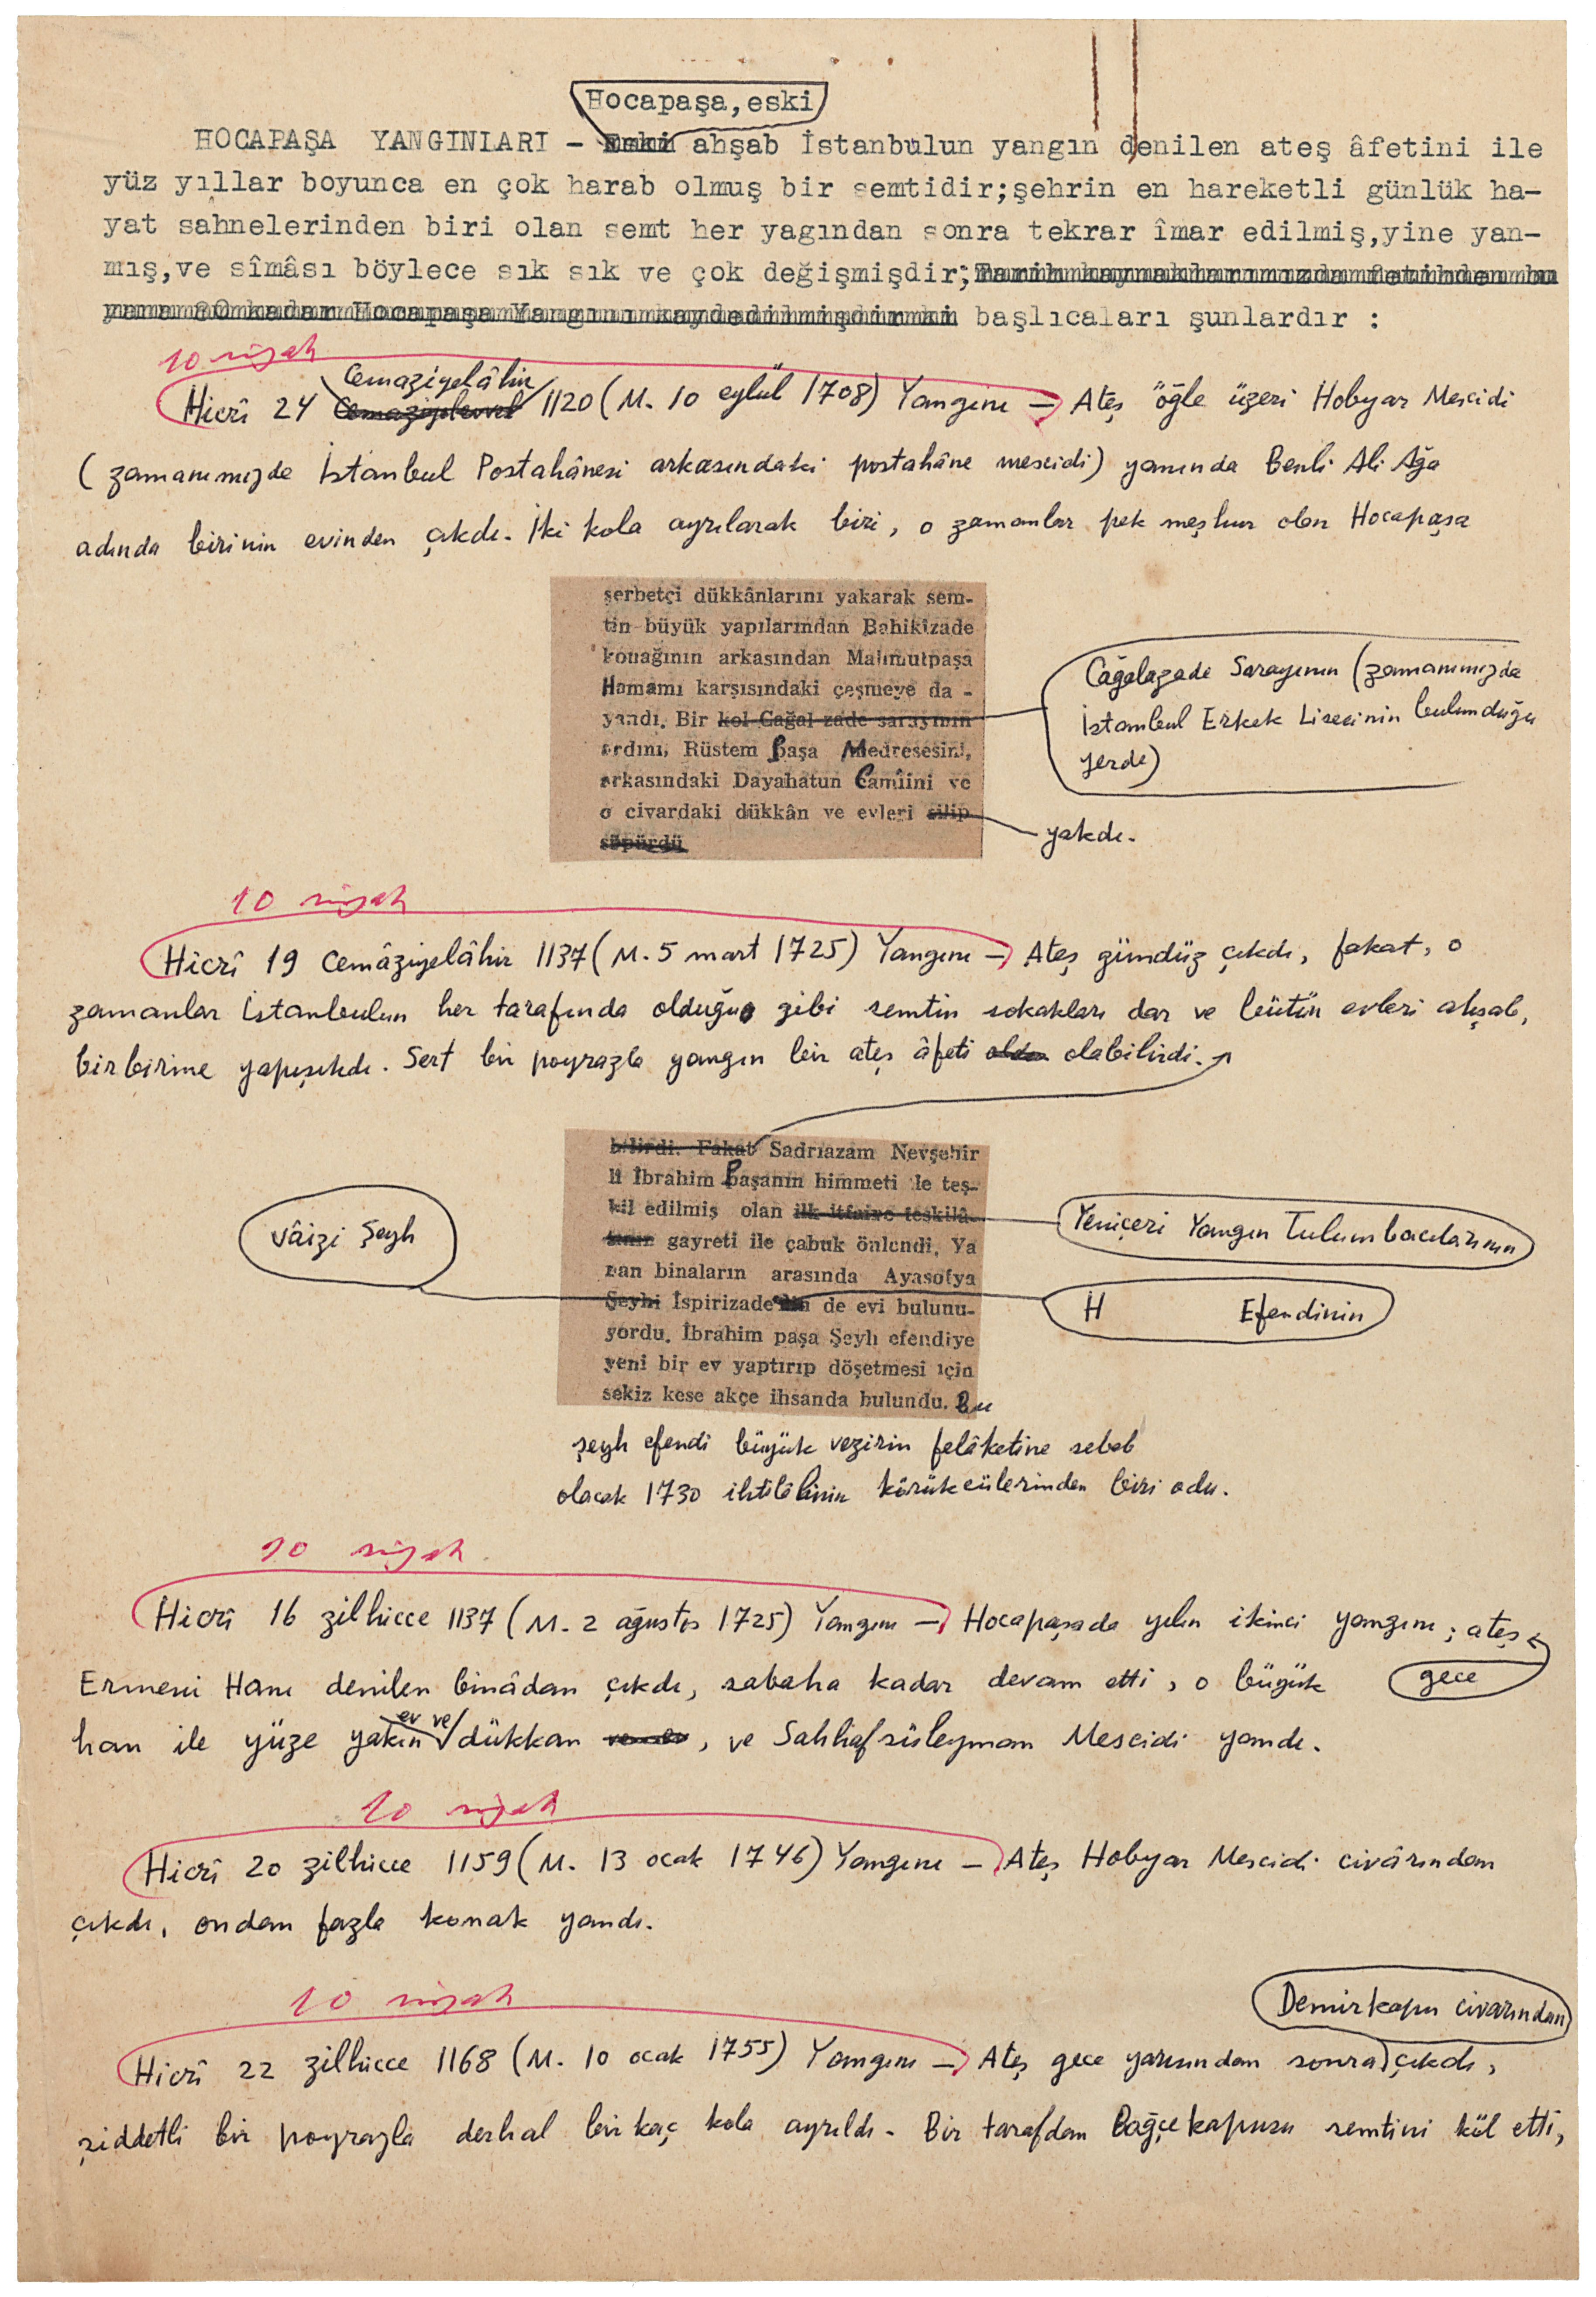 Hocapaşa,eski
HOCAPAŞA YANGINLARI - Eski ahşab İstanbulun yangın denilen ateş âfetini ile
yüz yıllar boyunca en çok harab olmuş bir semtidir;şehrin en hareketli günlük ha-
yat sahnelerinden biri olan semt her yagından sonra tekrar îmar edilmiş,yine yan-
mış,ve sîmâsı böylece sık sık ve çok değişmişdir;Tarih kaynaklarımızda fetihden bu
yana 20 kadar Hocapaşa Yangını kaydedilmişdir ki başlıcaları şunlardır :
10 siyah
Cemaziyelâhir
Hicrî 24 Cemaziyelevvel 1120 (M. 10 eylül 1708) Yangını - Ateş öğle üzeri Hobyar Mescidi
(zamanımızda İstanbul Postahânesi arkasındaki postahâne mescidi) yanında Benli Ali Ağa
adında birinin evinden çıkdı. İki kola ayrılarak biri, o zamanlar pek meşhur olan Hocapaşa
şerbetçi dükkânlarını yakarak sem-
tin büyük yapılarından Bahikîzade
konağının arkasından Mahmutpaşa
Hamamı karşısındaki çeşmeye da -
yandı. Bir kol Cağal zade sarayının
ardını, Rüstem Paşa Medresesini,
arkasındaki Dayahatun Camiini ve
o civardaki dükkân ve evleri silip
süpürdü
Cağalazade Sarayının (zamanımızda
İstanbul Erkek Lisesinin bulunduğu
yerde)
yakdı.
10 siyah
Hicrî 19 Cemâziyelâhir 1137 (M. 5 mart 1725) Yangını - Ateş gündüz çıkdı, fakat, o
zamanlar İstanbulun her tarafında olduğu gibi semtin sokakları dar ve bütün evleri ahşab,
birbirine yapışıkdı. Sert bir poyrazla yangın bir ateş âfeti olabilirdi.
bilirdi. Fakat Sadrıazam Nevşehir
li İbrahim Paşanın himmeti ile teş-
kil edilmiş olan ilk itfaiye teşkilâ-
tının gayreti ile çabuk önlendi. Ya
nan binaların arasında Ayasofya
Şeyhi İspirizade'nin de evi bulunu-
yordu. İbrahim paşa Şeyh efendiye
yeni bir ev yaptırıp döşetmesi için
sekiz kese akçe ihsanda bulundu. Bu
vâizi Şeyh
Yeniçeri Yangın Tulumbacılarının
H Efendinin
şeyh efendi büyük vezirin felâketine sebeb
olacak 1730 ihtilâlinin körükcülerinden biri odu.
10 siyah
Hicrî 16 zilhicce 1137 (M. 2 ağustos 1725) Yangını - Hocapaşada yılın ikinci yangını; ateş
gece
Ermeni Hanı denilen binâdan çıkdı, sabaha kadar devam etti, o büyük
ev ve
han ile yüze yakın dükkan ve ev, ve Sahhafsüleyman Mescidi yandı.
10 siyah
Hicrî 20 zilhicce 1159 (M. 13 ocak 1746) Yangını - Ateş Hobyar Mescidi civârından
çıkdı, ondan fazla konak yandı.
10 siyah
Demirkapu civarından
Hicrî 22 zilhicce 1168 (M. 10 ocak 1755) Yangını - Ateş gece yarısından sonra çıkdı,
şiddetli bir poyrazla derhal bir kaç kola ayrıldı. Bir tarafdan Bağçekapusu semtini kül etti,